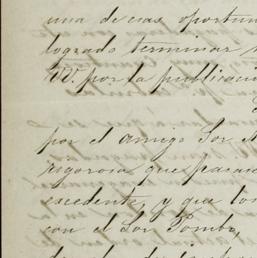 una de esas oportun
logrado terminar
VV. por la publicaci
por el amigo Sor
rigorosa que para
excedente, y que los
con el Sor Pombo,